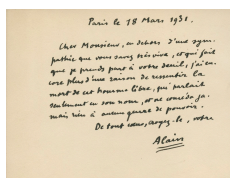 Paris le 18 Mars 1931.
Cher Monsieur, en dehors d'une sym-
pathie que vous savez très vive, et qui fait
que je prends part à votre deuil, j'ai en-
core plus d'une raison de ressentir la
mort de cet homme libre, qui parlait
seulement en son nom, et ne concéda ja-
mais rien à aucun genre de pouvoir.
De tout cœur, croyez-le, votre
Alain